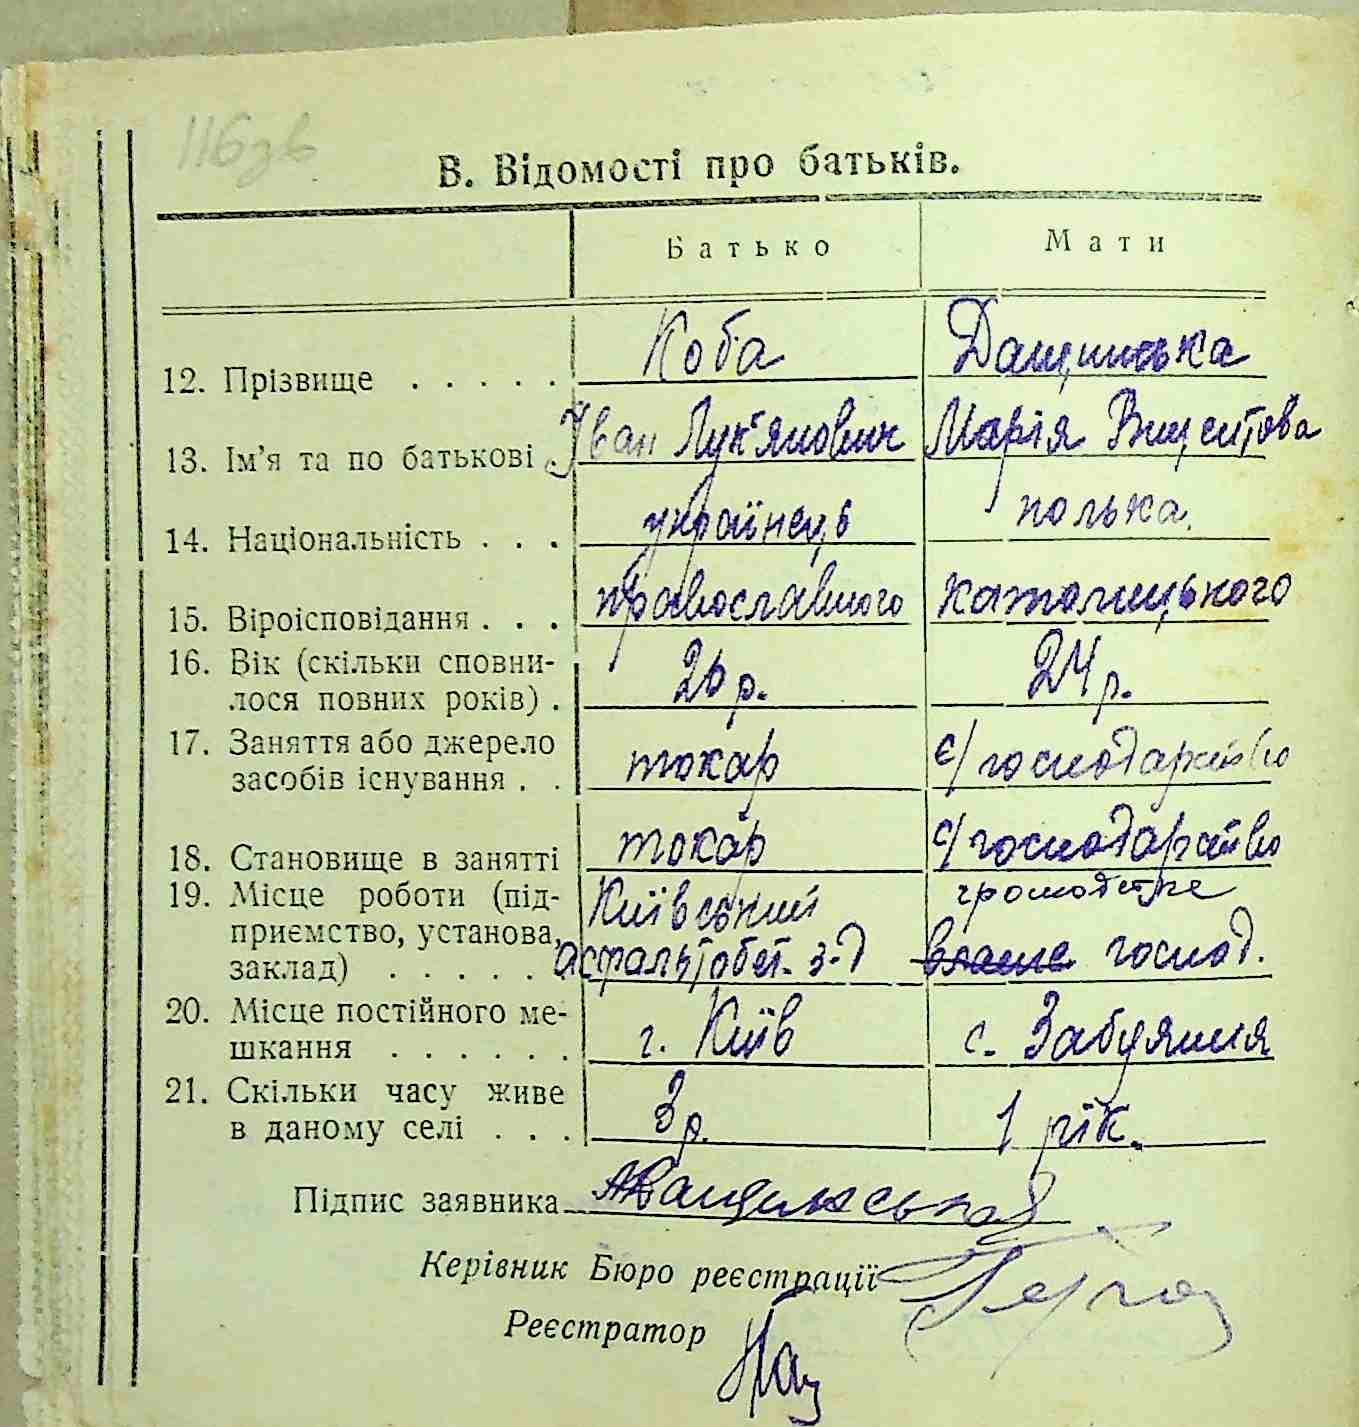 116зв
В. Відомості про батьків.
Батько Мати
12. Прізвище . . . . . Коба Дащинська
13. Ім'я та по батькові Іван Лук'янович Марія Вицентова
14. Національність . . . українець полька.
15. Віроісповідання . . . православного католицького
16. Вік (скільки сповни-
лося повних років) . 26 р. 24 р.
17. Заняття або джерело
засобів існування . . токар с/господарство
18. Становище в занятті токар с/господарство
19. Місце роботи (під- Київський громадське
приємство, установа, асфальтобет. з-д власне господ.
заклад) . . . . .
20. Місце постійного ме-
шкання . . . . . . г. Київ с. Забуяння
21. Скільки часу живе
в даному селі . . . 3 р. 1 рік.
Підпис заявника
Керівник Бюро реєстрації
Реєстратор